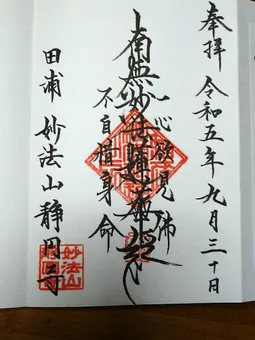 奉拝 令和五年九月三十日
一心欲見佛
南無妙法蓮華経
不自惜身命
田浦 妙法山 静円寺
妙法山